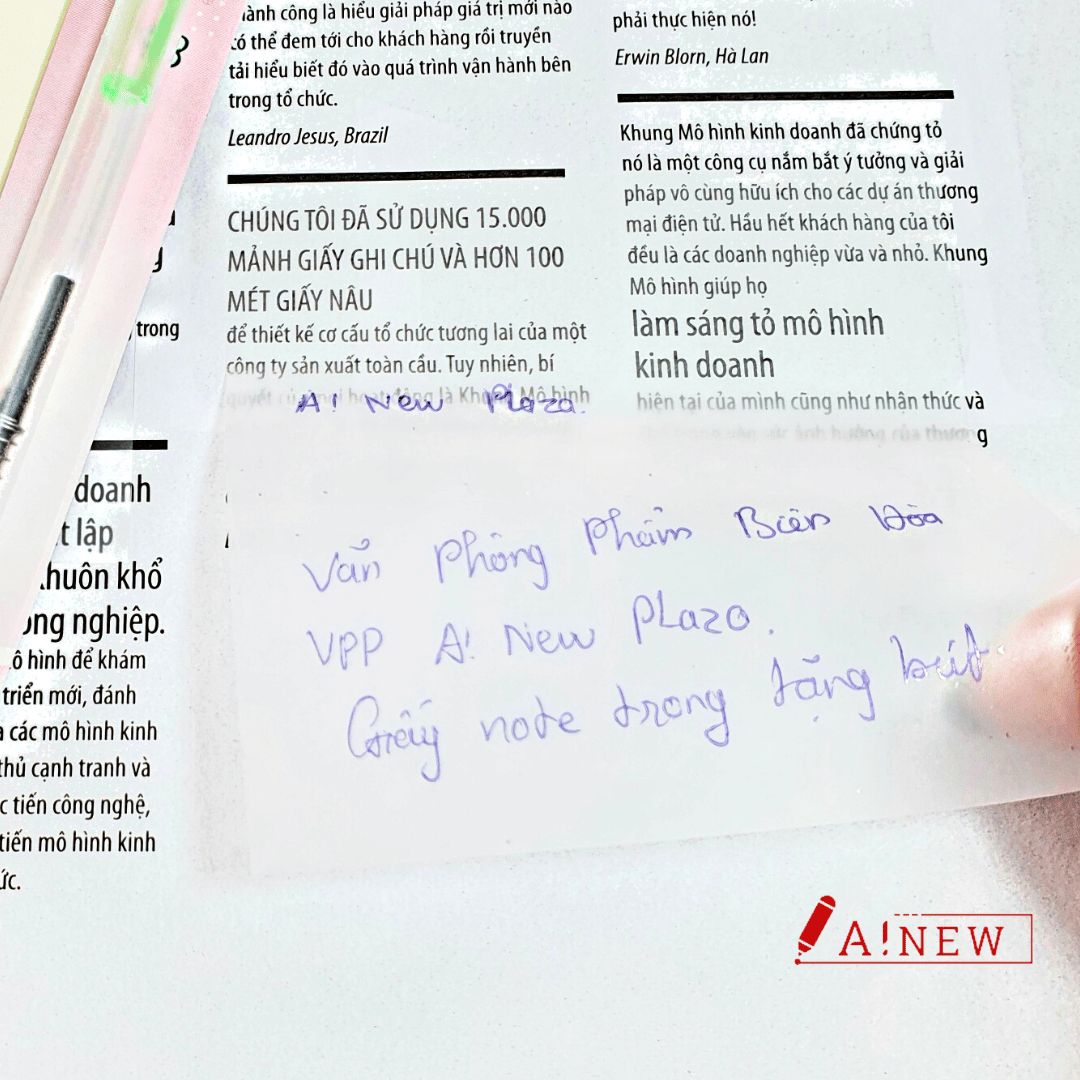 3
hành công là hiểu giải pháp giá trị mới nào
có thể đem tới cho khách hàng rồi truyền
tải hiểu biết đó vào quá trình vận hành bên
trong tổ chức.
Leandro Jesus, Brazil
CHÚNG TÔI ĐÃ SỬ DỤNG 15.000
MẢNH GIẤY GHI CHÚ VÀ HƠN 100
MÉT GIẤY NÂU
để thiết kế cơ cấu tổ chức tương lai của một
công ty sản xuất toàn cầu. Tuy nhiên, bí
quyết của mọi hoạt động là Khung Mô hình
phải thực hiện nó!
Erwin Blorn, Hà Lan
Khung Mô hình kinh doanh đã chứng tỏ
nó là một công cụ nắm bắt ý tưởng và giải
pháp vô cùng hữu ích cho các dự án thương
mại điện tử. Hầu hết khách hàng của tôi
đều là các doanh nghiệp vừa và nhỏ. Khung
Mô hình giúp họ
làm sáng tỏ mô hình
kinh doanh
hiện tại của mình cũng như nhận thức và
ảnh hưởng của thương
trong
doanh
lập
khuôn khổ
nghiệp.
ô hình để khám
triển mới, đánh
các mô hình kinh
thủ cạnh tranh và
tiến công nghệ,
tiến mô hình kinh
A! New Plaza.
Văn Phòng Phẩm Biên Hòa
VPP A! New Plaza.
Giấy note trong tặng bút
A!NEW